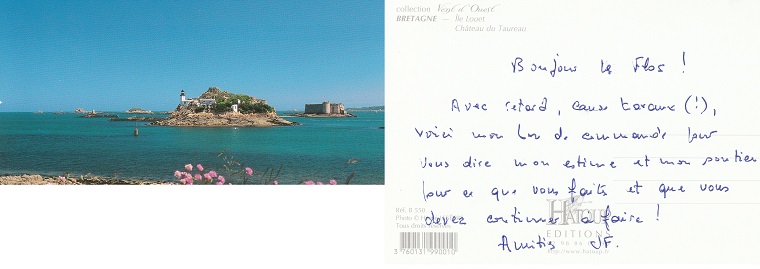 collection Vent d'Ouest
BRETAGNE — Île Louët
Château du Taureau
Bonjour les Flos !
Avec retard, cause travaux (!),
voici mon bon de commande pour
vous dire mon estime et mon soutien
pour ce que vous faits et que vous
devez continuer à faire !
Amitiés JF.
Réf. B 550
Photo ©
Tous droits
EDITIONS
3 760131 990010